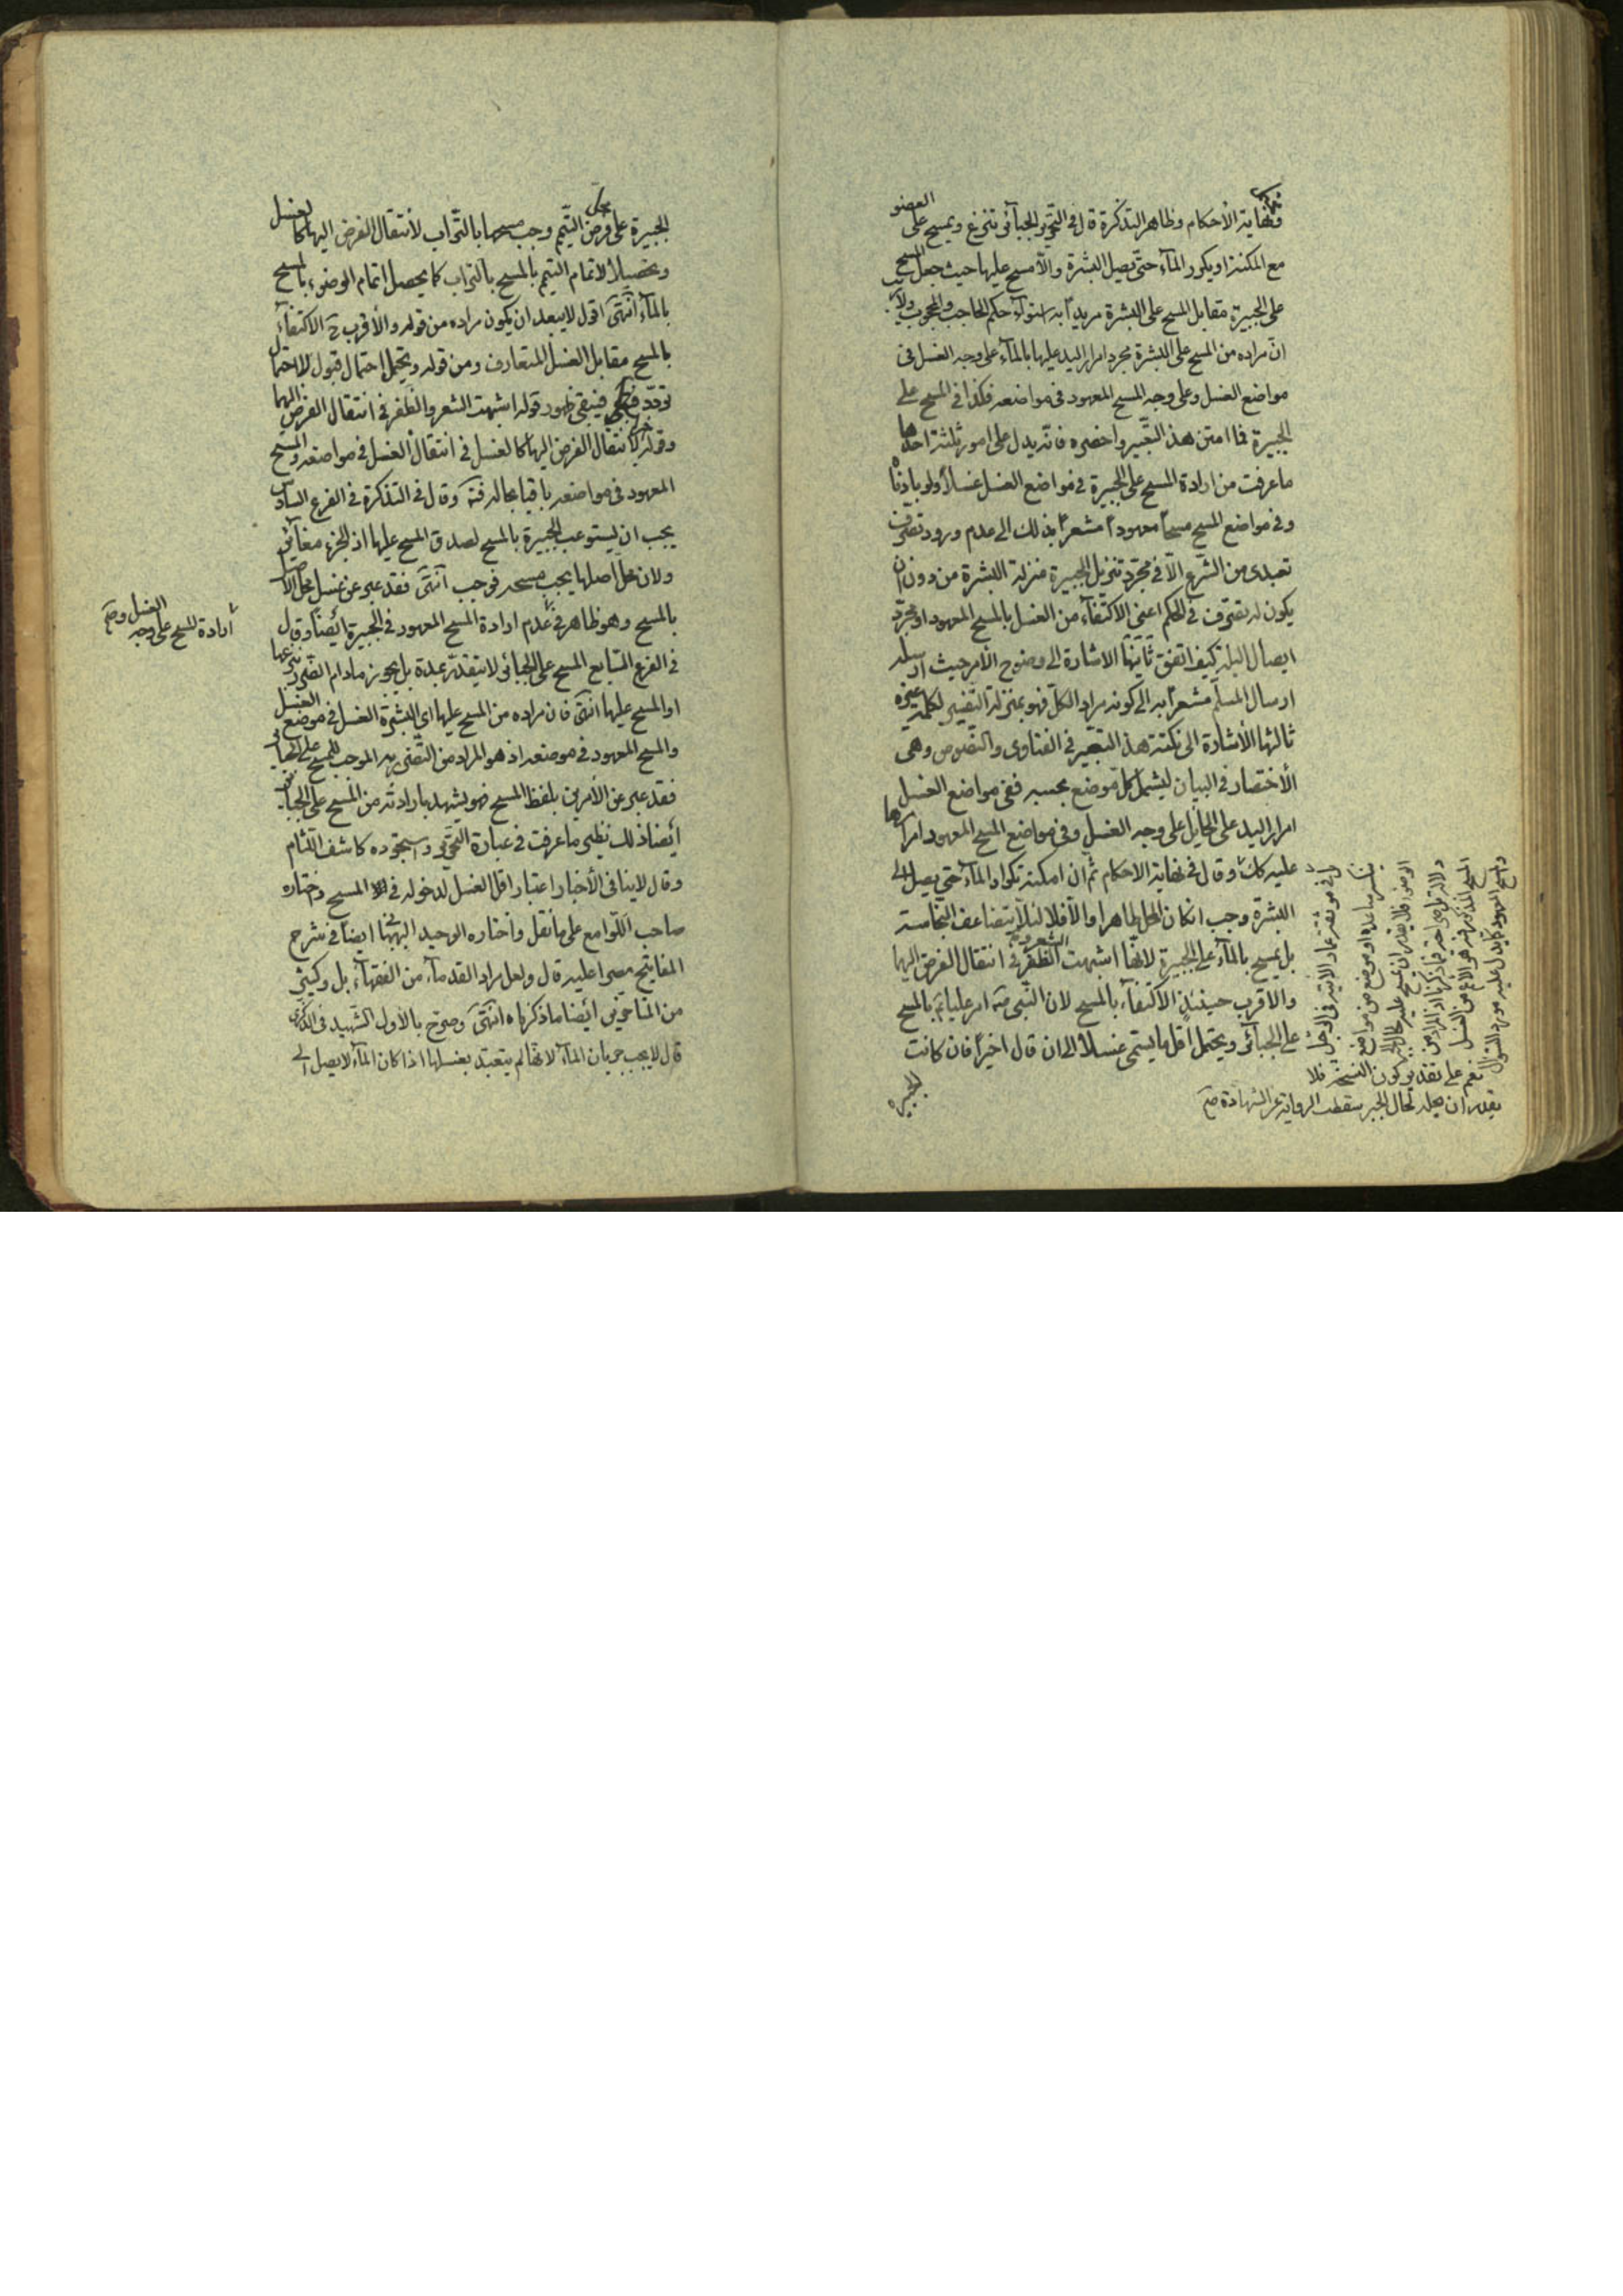 ونهاية الأحكام وظاهر التذكرة قال في التحرير الجبائر تنزع ويمسح على العضو
مع المكنة او يكرر المآء حتى يصل البشرة والا مسح عليها حيث جعل المسح
على الجبيرة مقابل المسح على البشرة مريداً به استوآء حكم الحاجب والمحجوب ولا ريب
ان مراده من المسح على البشرة مجرد امرار اليد عليها بالمآء على وجه الغسل في
مواضع الغسل وعلى وجه المسح المعهود في مواضعه فكذا في المسح على
الجبيرة فما امتن هذ التعبير واخصره فانه يدل على امور ثلثة احدها
ما عرفت من ارادة المسح على الجبيرة في مواضع الغسل غسلاً ولو بادناه
وفي مواضع المسح مسحاً معهوداً مشعراً بذلك الى عدم ورود تصرف
تعبدى من الشرع الا في مجرد تنزيل الجبيرة منزلة البشرة من دون ان
يكون له تصرف في الحكم اعنى الاكتفآء من الغسل بالمسح المعهود او مجرد
ايصال البلة كيف اتفق ثانيها الاشارة الى وضوح الامر حيث ارسله
ارسال المسلم مشعراً به الى كونه مراد الكل فهو بمنزلة التفسير لكلمة غيره
ثالثها الأشارة الى نكتة هذ التعبير في الفتاوى والنصوص وهى
الأختصار في البيان ليشمل كل موضع بحسبه ففى مواضع الغسل
امرار اليد على الحايل على وجه الغسل وفى مواضع المسح المعهود امرارها
عليه كك وقال في نهاية الاحكام ثم ان امكنه تكرار المآء حتى يصل الى
البشرة وجب ان كان المحل طاهرا والا فلا لئلا يتضاعف النجاسة
بل يمسح بالمآء على الجبيرة لانها اشبهت الشعر والظفر في انتقال الفرض اليها
والاقرب حينئذٍ الاكتفآء بالمسح لان النبى امر علياً بالمسح
على الجبائر ويحتمل اقل ما يسمى غسلاً الى ان قال اخيراً فان كانت
الجبيرة
نعم على تقدير كون النسخة فلا
يقدر ان يحله لحال الجبر سقطت الرواية عن الشهادة صح
الجبيرة على محل فرض التيمم وجب مسحها بالتراب لأنتقال الفرض اليها كالغسل
وتحصيلاً لاتمام التيمم بالمسح بالتراب كما يحصل اتمام الوضوء بالمسح
بالمآء انتهى اقول لا يبعد ان يكون مراده من قوله والأقرب ح الاكتفآء
بالمسح مقابل الغسل المتعارف ومن قوله ويحتمل احتمال قبول لا احتمال
تردد فيبقى ظهور قوله اشبهت الشعر والظفر في انتقال الفرض اليها
وقوله لانتقال الفرض اليها كالغسل في انتقال الغسل في مواضعه والمسح
المعهود في مواضعه باقيا بحاله وقال في التذكرة في الفرع السادس
يجب ان يستوعب الجبيرة بالمسح لصدق المسح عليها اذ الجزء مغاير
ولان محل اصلها يجب مسحه فوجب انتهى فقد عبر عن غسل محل الاصل
بالمسح وهو ظاهر في عدم ارادة المسح المعهود في الجبيرة ايضاً وقال
ارادة المسح على وجه الغسل صح
في الفرع السابع المسح على الجبائر لا يتقدر بمدة بل يجوز مادام الضرر
او المسح عليها انتهى فان مراده من المسح عليها اى البشرة الغسل في موضع الغسل
والمسح المعهود في موضعه اذ هو المراد من التضرر به الموجب للمسح على الجبائر
فقد عبر عن الأمرين بلفظ المسح فهو يشهد بارادته من المسح على الجبائر
ايضا ذلك نظير ما عرفت في عبارة التحرير واستجوده كاشف اللثام
وقال لا ينافى الأخبار اعتبار اقل الغسل لدخوله في المسح واختاره
صاحب اللوامع على ما نقل واختاره الوحيد البهبهانى ايضاً في شرح
المفاتيح مصرا عليه قال ولعل مراد القدمآء من الفقهآء بل وكثير
من المتاخرين ايضا ما ذكرناه انتهى وصرح بالأول الشهيد في الذكرى
قال لا يجب جريان المآء لانها لم يتعبد بغسلها اذا كان المآء لا يصل الى